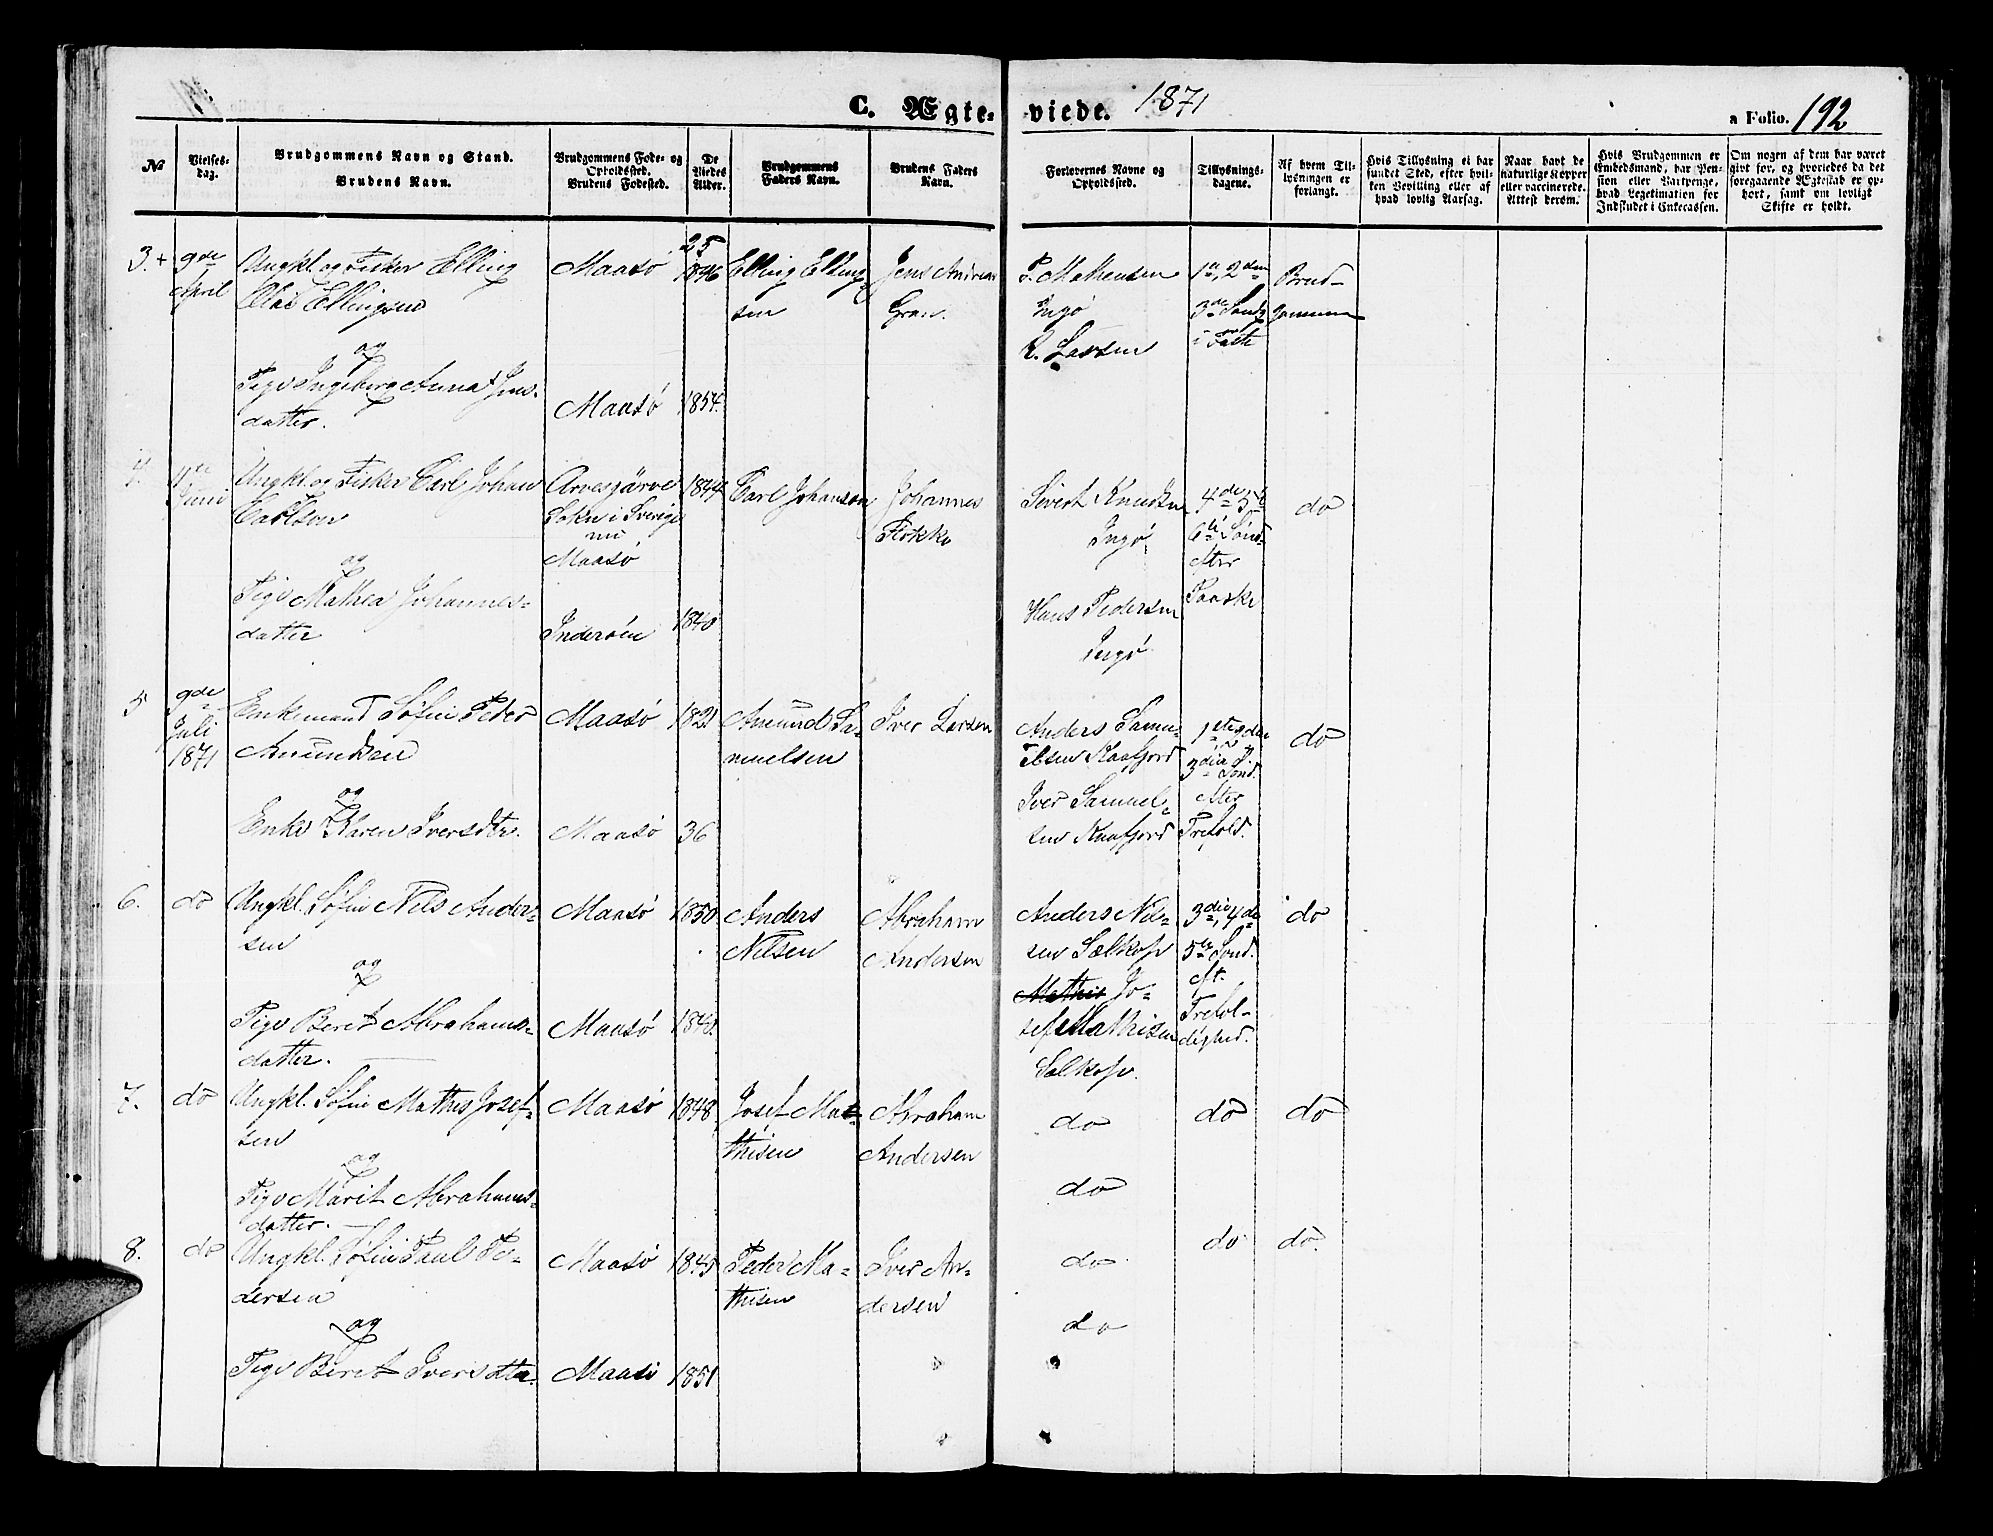 C. Ægte-viede. 1871
a Folio. 192
No
Vielses-dag.
Brudgommens Navn og Stand.
Brudens Navn.
Brudgommens Føde- og Opholdssted.
Brudens Fødested.
De Viedes Alder.
Brudgommens Faders Navn.
Brudens Faders Navn.
Forlovernes Navne og Opholdssted.
Tillysnings-dagene.
Af hvem Tillysningen er forlangt.
Hvis Tillysning ei har fundet Sted, efter hvilken Bevilling eller af hvad lovlig Aarsag.
Naar havt de naturlige Kopper eller vaccinerede. Attest derom.
Hvis Brudgommen er Embedsmand, har Pension eller Vartpenge, hvad Legitimation for Indskudet i Enkecassen.
Om nogen af dem har været givt for, og hvorledes da det foregaaende Ægteskab er ophørt, samt om lovligt Skifte er holdt.
3.+ 9de April
Ungkl. og Fisker Elling
Ellingsen
og
Pige Ingeborg Anna Jens-
datter.
Maasø
Maasø
25
1846
1854.
Elling Elling-
sen
Jens Andreas
Gran.
P. Mathensen
Ingø
R. Larsen
1ste, 2den
3die Sønd.
i Faste
Brud-
gommen
4. Juni
Ungkl. og Fisker Carl Johan
Carlson
og
Pige Mathea Johannes-
datter
Arvesjärve
Sokn i Sverige
nu
Maasø
Inderøen
1844
1840
Carl Johanson
Johannes
Flokko
Sivert Knudsen
Ingø
Hans Pedersen
Ingø
4de 5te
6te Sønd.
efter
Paaske
do
5 9de Juli 1871
Enkemand Søfin Peder
Amundsen
og
Enke Karen Iversdtr.
Maasø
Maasø
1821
36
Amund Sa-
muelsen
Iver Larsen
Anders Samu-
elsen Kaafjord
Iver Samuel-
sen Kaafjord
1ste 2den
3die Sønd.
efter
Trefold.
do
6. do
Ungkl. Søfin Nils Ander-
sen
og
Pige Beret Abrahams-
datter.
Maasø
Maasø
1850.
Anders
Nilsen
Abraham
Andersen
Anders Niel-
sen Sælkop
Mathis Jo-
sef Mathisen
Sælkop.
3die, 4de
5te Sønd.
eft.
Trefol-
dighed.
do
7. do
Ungkl. Søfin Mathis Josef-
sen
og
Pige Marit Abrahams-
datter.
Maasø
1848
Josef Ma-
thisen
Abraham
Andersen
do
do
do
do
8. do
Ungkl. Søfin Paul Pe-
dersen
og
Pige Beret Iversdtr.
Maasø
Maasø
1845
1851
Peder Ma-
thisen
Iver An-
dersen
do
do
do
do.